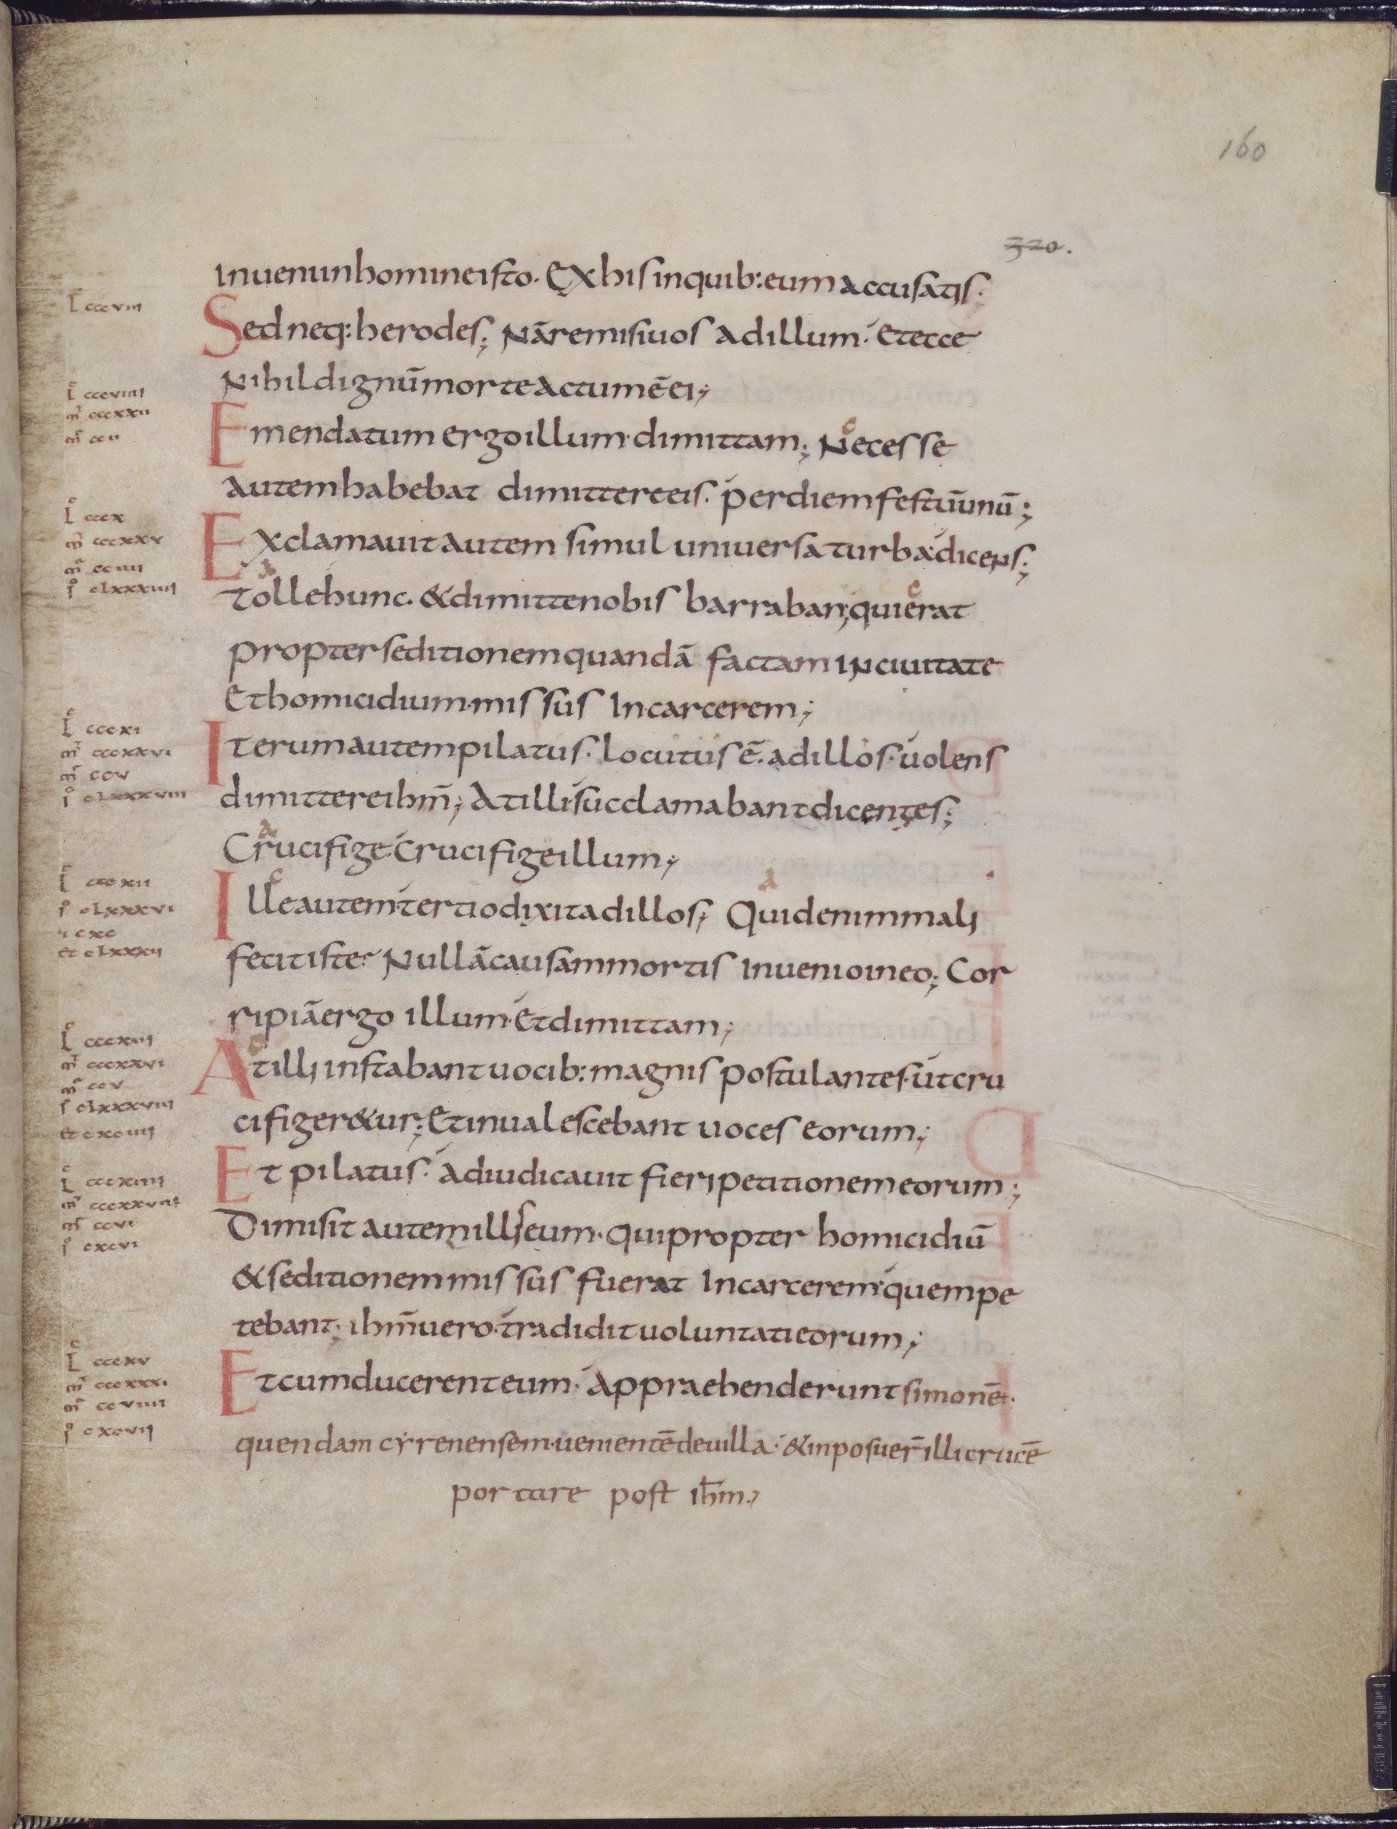 160
320.
inueni inhomineisto. Exhisinquib: eum accusatis;
L cccviii
Sed neq: herodes; Nāremisiuos adillum. Etecce
nihildignūmorteactumēei;
L cccviiii
m cccxxii
m ccii
Emendatum ergoillum dimittam; Necesse
autemhabebat dimittereeis. perdiemfestūunū;
L cccx
m cccxxv
m cciiii
i clxxxiiii
Exclamauitautem simul uniuersaturbadicens;
tollehunc. &dimittenobis barraban; quierat
propterseditionemquandā factam inciuitate
Ethomicidium. missus incarcerem;
L cccxi
m cccxxvi
m ccv
i clxxxviii
Iterumautempilatus. locutusē. adillos. uolens
dimittereihm̄; Atillisucclamabantdicentes;
Crucifige Crucifigeillum;
L cccxii
i clxxxvi
i cxc
et clxxxii
Illeautem tertiodixitadillos; Quidenimmali
fecitiste? Nullācausammortis inuenioineo; Cor
ripiāergo illum. Etdimittam;
L cccxiii
m cccxxvi
m ccv
i clxxxviii
et cxciiii
Atilli instabantuocib: magnis postulantes. utcru
cifiger&ur; Etinualescebant uoces eorum;
L cccxiiii
m cccxxviii
m ccvi
i cxcvi
Et pilatus. adiudicauit fieripetitionemeorum;
Dimisit autemillis eum. quipropter homicidiū
&seditionemmissus fuerat incarcerem. quempe
tebant. ihm̄uero. tradidituoluntatieorum;
L cccxv
m cccxxxi
m ccviiii
i cxcvii
Etcumducerenteum. Appraehenderuntsimonē.
quendam cyrenensem. uenientēdeuilla. &inposuer̄illicrucē
portare post ihm̄.